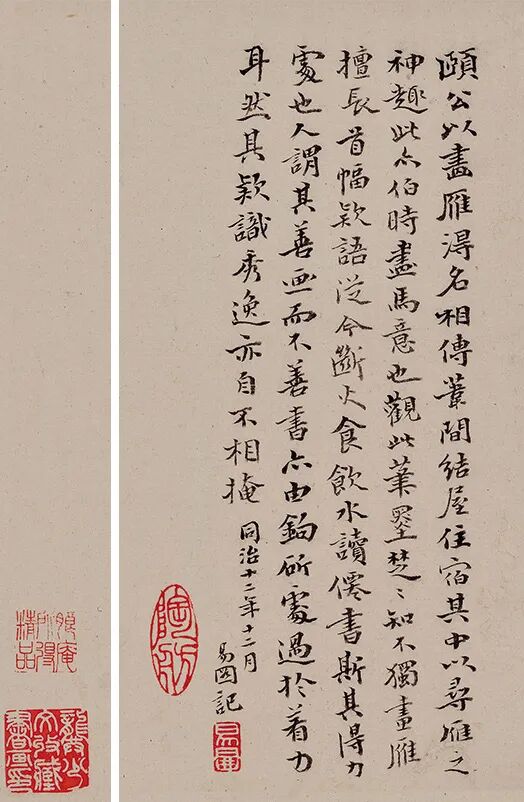 頤公以畫雁得名相傳葦間結屋住宿其中以尋雁之
神趣此亦伯時畫馬意也觀此葉墨楚〻知不獨畫雁
擅長首幅欵語從今斷火食飲水讀僊書斯其得力
處也人謂其善画而不善書亦由鉤斫處過於着力
耳然其欵識秀逸亦自不相掩 同治十二年十二月
易図記
陶舫
頤庵
所得
精品